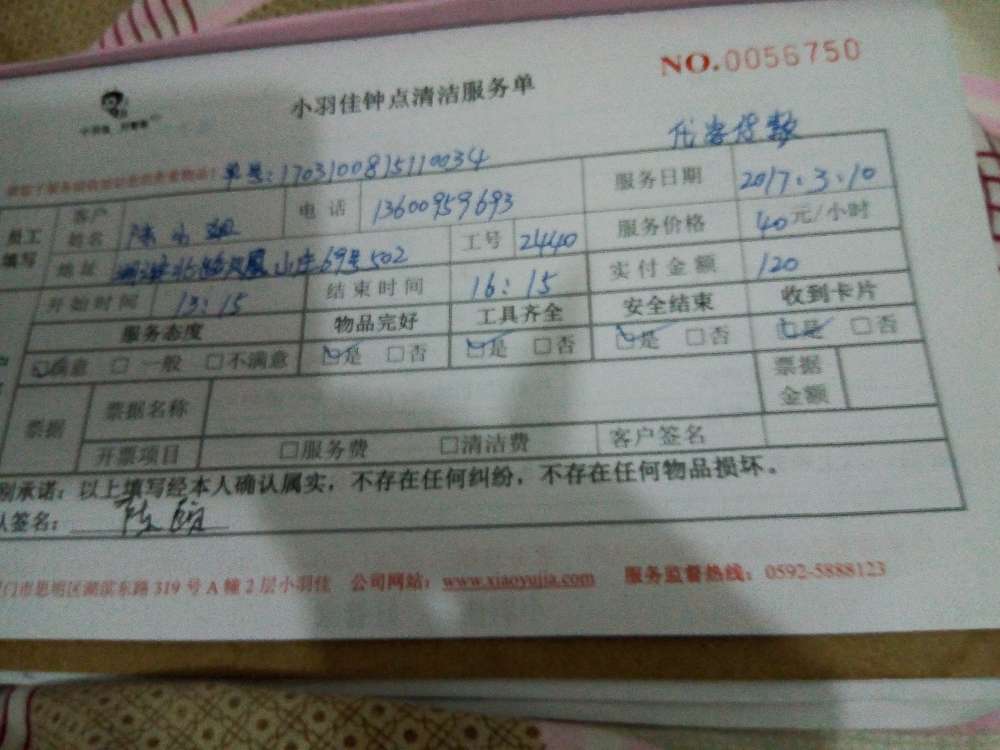 NO.0056750
小羽佳钟点清洁服务单
单号:1703100815110034
员工填写 客户姓名 陈 电话 13600959693 服务日期 2017.3.10
地址 湖滨北路凤凰山庄69号502 工号 2440 服务价格 40元/小时
开始时间 13:15 结束时间 16:15 实付金额 120
服务态度 物品完好 工具齐全 安全结束 收到卡片
☑满意 □一般 □不满意 ☑是 □否 ☑是 □否 ☑是 □否 ☑是 □否
票据 票据名称 票据金额
开票项目 □服务费 □清洁费 客户签名
别承诺：以上填写经本人确认属实，不存在任何纠纷，不存在任何物品损坏。
认签名： 陈
门市思明区湖滨东路319号A幢2层小羽佳 公司网站：www.xiaoyujia.com 服务监督热线：0592-5888123